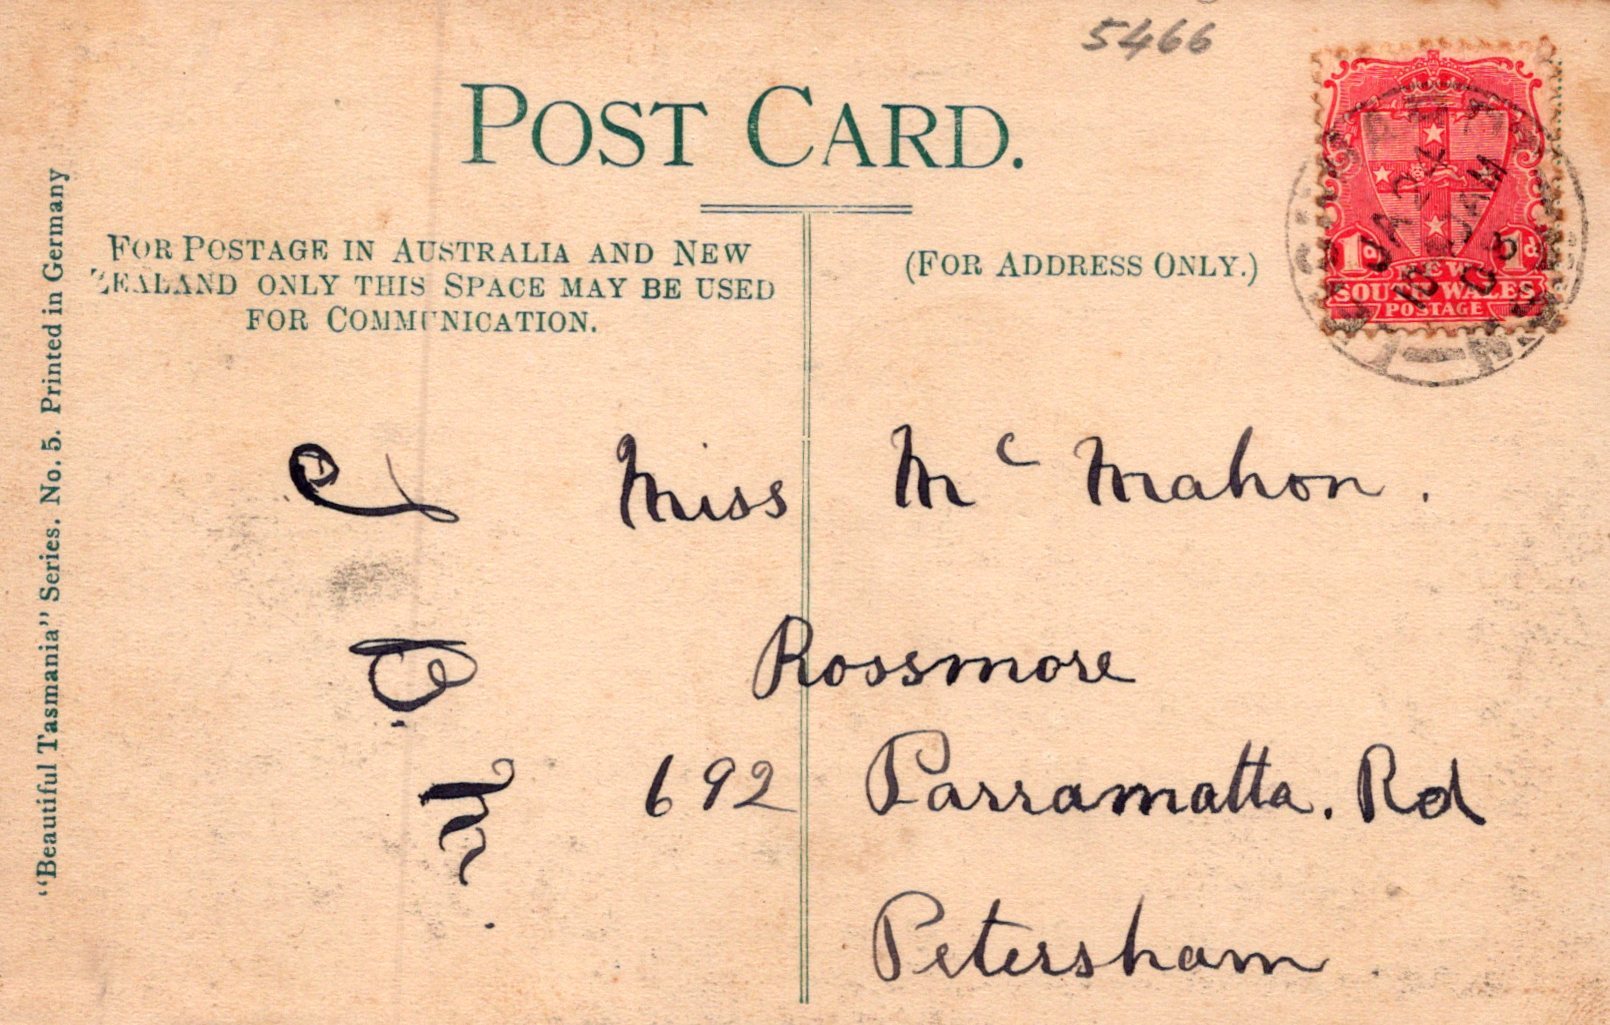 5466
POST CARD.
FOR POSTAGE IN AUSTRALIA AND NEW
ZEALAND ONLY THIS SPACE MAY BE USED
FOR COMMUNICATION.
(FOR ADDRESS ONLY.)
1d 1d
NEW
SOUTH WALES
POSTAGE
JA 24
"Beautiful Tasmania" Series. No. 5. Printed in Germany
Miss Mc Mahon.
Rossmore
692 Parramatta. Rd
Petersham